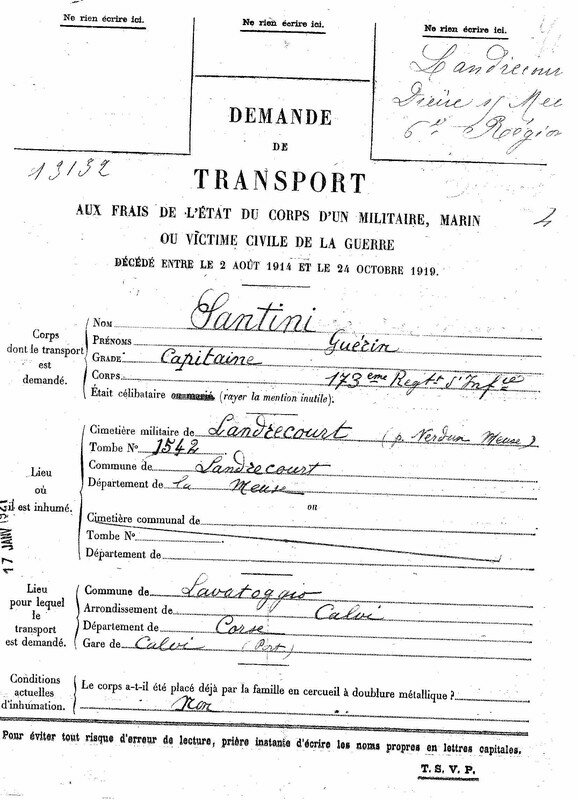 Ne rien écrire ici.
Ne rien écrire ici.
Ne rien écrire ici.
Landrecour
Dieüe s/ Meu
6e Régio
13132
DEMANDE
DE
TRANSPORT
AUX FRAIS DE L'ÉTAT DU CORPS D'UN MILITAIRE, MARIN
OU VICTIME CIVILE DE LA GUERRE
DÉCÉDÉ ENTRE LE 2 AOÛT 1914 ET LE 24 OCTOBRE 1919.
Corps dont le transport est demandé.
NOM Santini
PRÉNOMS Guérin
GRADE Capitaine
CORPS 173eme Regt d'Infie
Était célibataire ou marié (rayer la mention inutile).
Lieu où il est inhumé.
Cimetière militaire de Landrecourt (p. Verdun Meuse)
Tombe No 1542
Commune de Landrecourt
Département de la Meuse
ou
Cimetière communal de
Tombe No
Département de
17 JANV 1921
Lieu pour lequel le transport est demandé.
Commune de Lavatoggio
Arrondissement de Calvi
Département de Corse
Gare de Calvi (Port)
Conditions actuelles d'inhumation.
Le corps a-t-il été placé déjà par la famille en cercueil à doublure métallique ?
Non
Pour éviter tout risque d'erreur de lecture, prière instante d'écrire les noms propres en lettres capitales.
T. S. V. P.